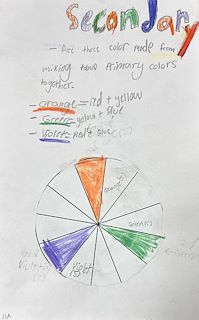 Secondary
- Are these color made from
mixing two Primary colors
together.
- orange = red + yellow
- Green = yellow + blue
- Violet = Red + blue
orange(s)
Green(s)
Green
Violet
Violet
(s)
11A